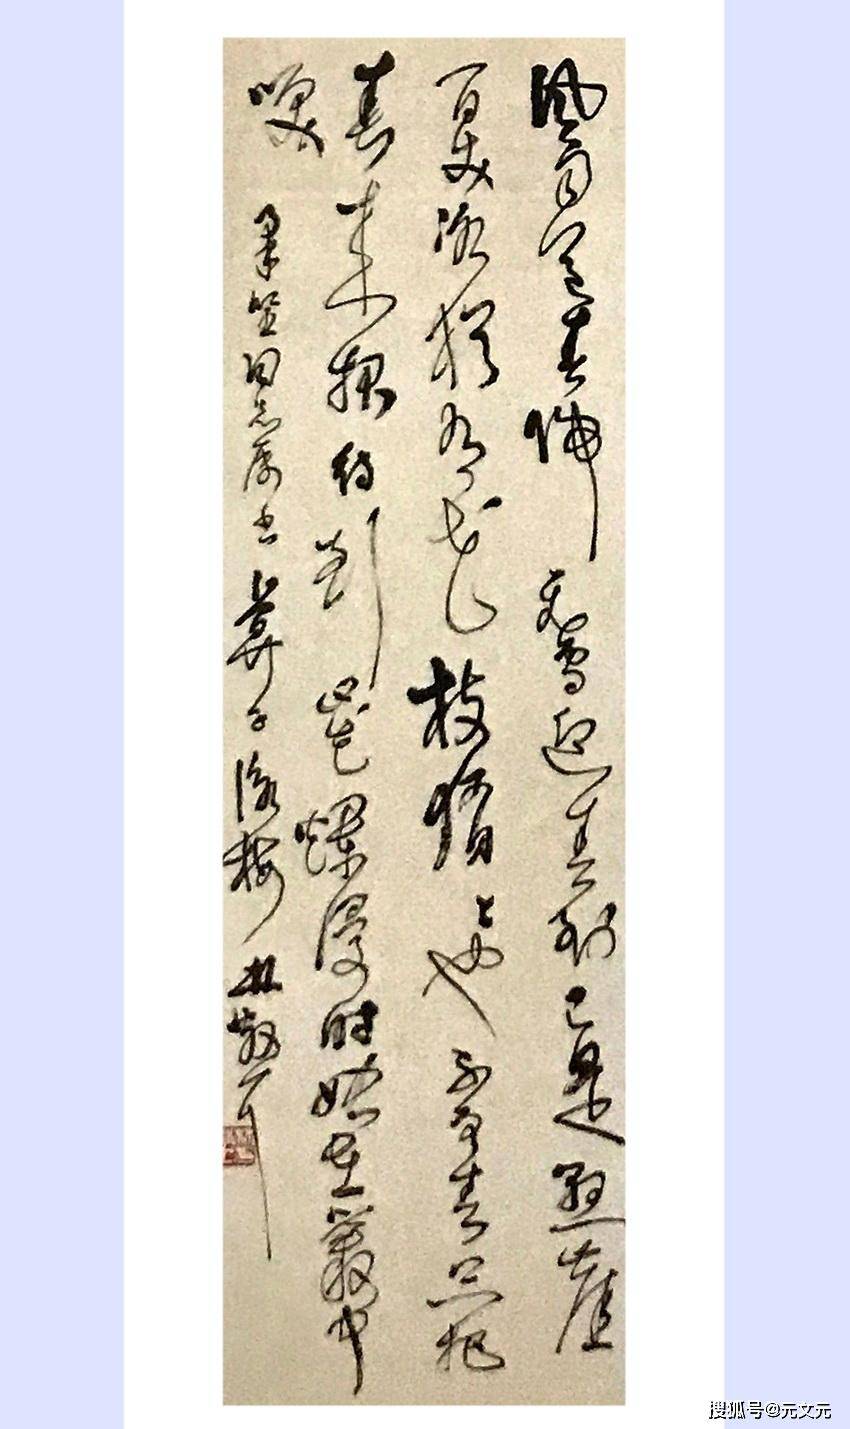 風雨送春歸飛雪迎春到已是懸崖
百丈冰猶有花枝俏〻也不爭春只把
春來報待到山花爛漫時她在叢中
笑 同志属书 卜算子咏梅 林散耳
搜狐号@元文元